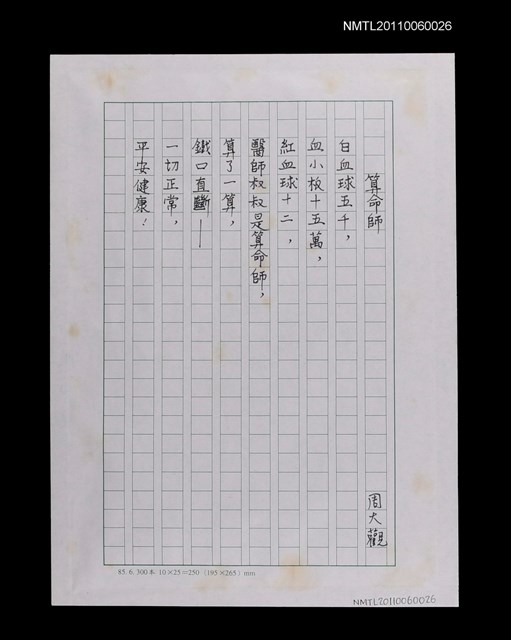 NMTL20110060026
算命師
周大觀
白血球五千，
血小板十五萬，
紅血球十二，
醫師叔叔是算命師，
算了一算，
鐵口直斷——
一切正常，
平安健康！
85.6.300本 10×25=250 (195×265) mm
NMTL20110060026